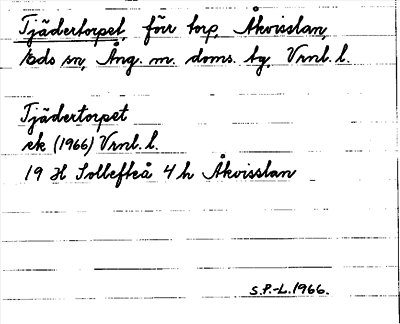 Tjädertorpet, förr torp, Åkvisslan,
Eds sn, Ång. m. doms. tg, Vrnl. l.
Tjädertorpet
ek (1966) Vrnl. l.
19 H Sollefteå 4 h Åkvisslan
S.P.-L. 1966.